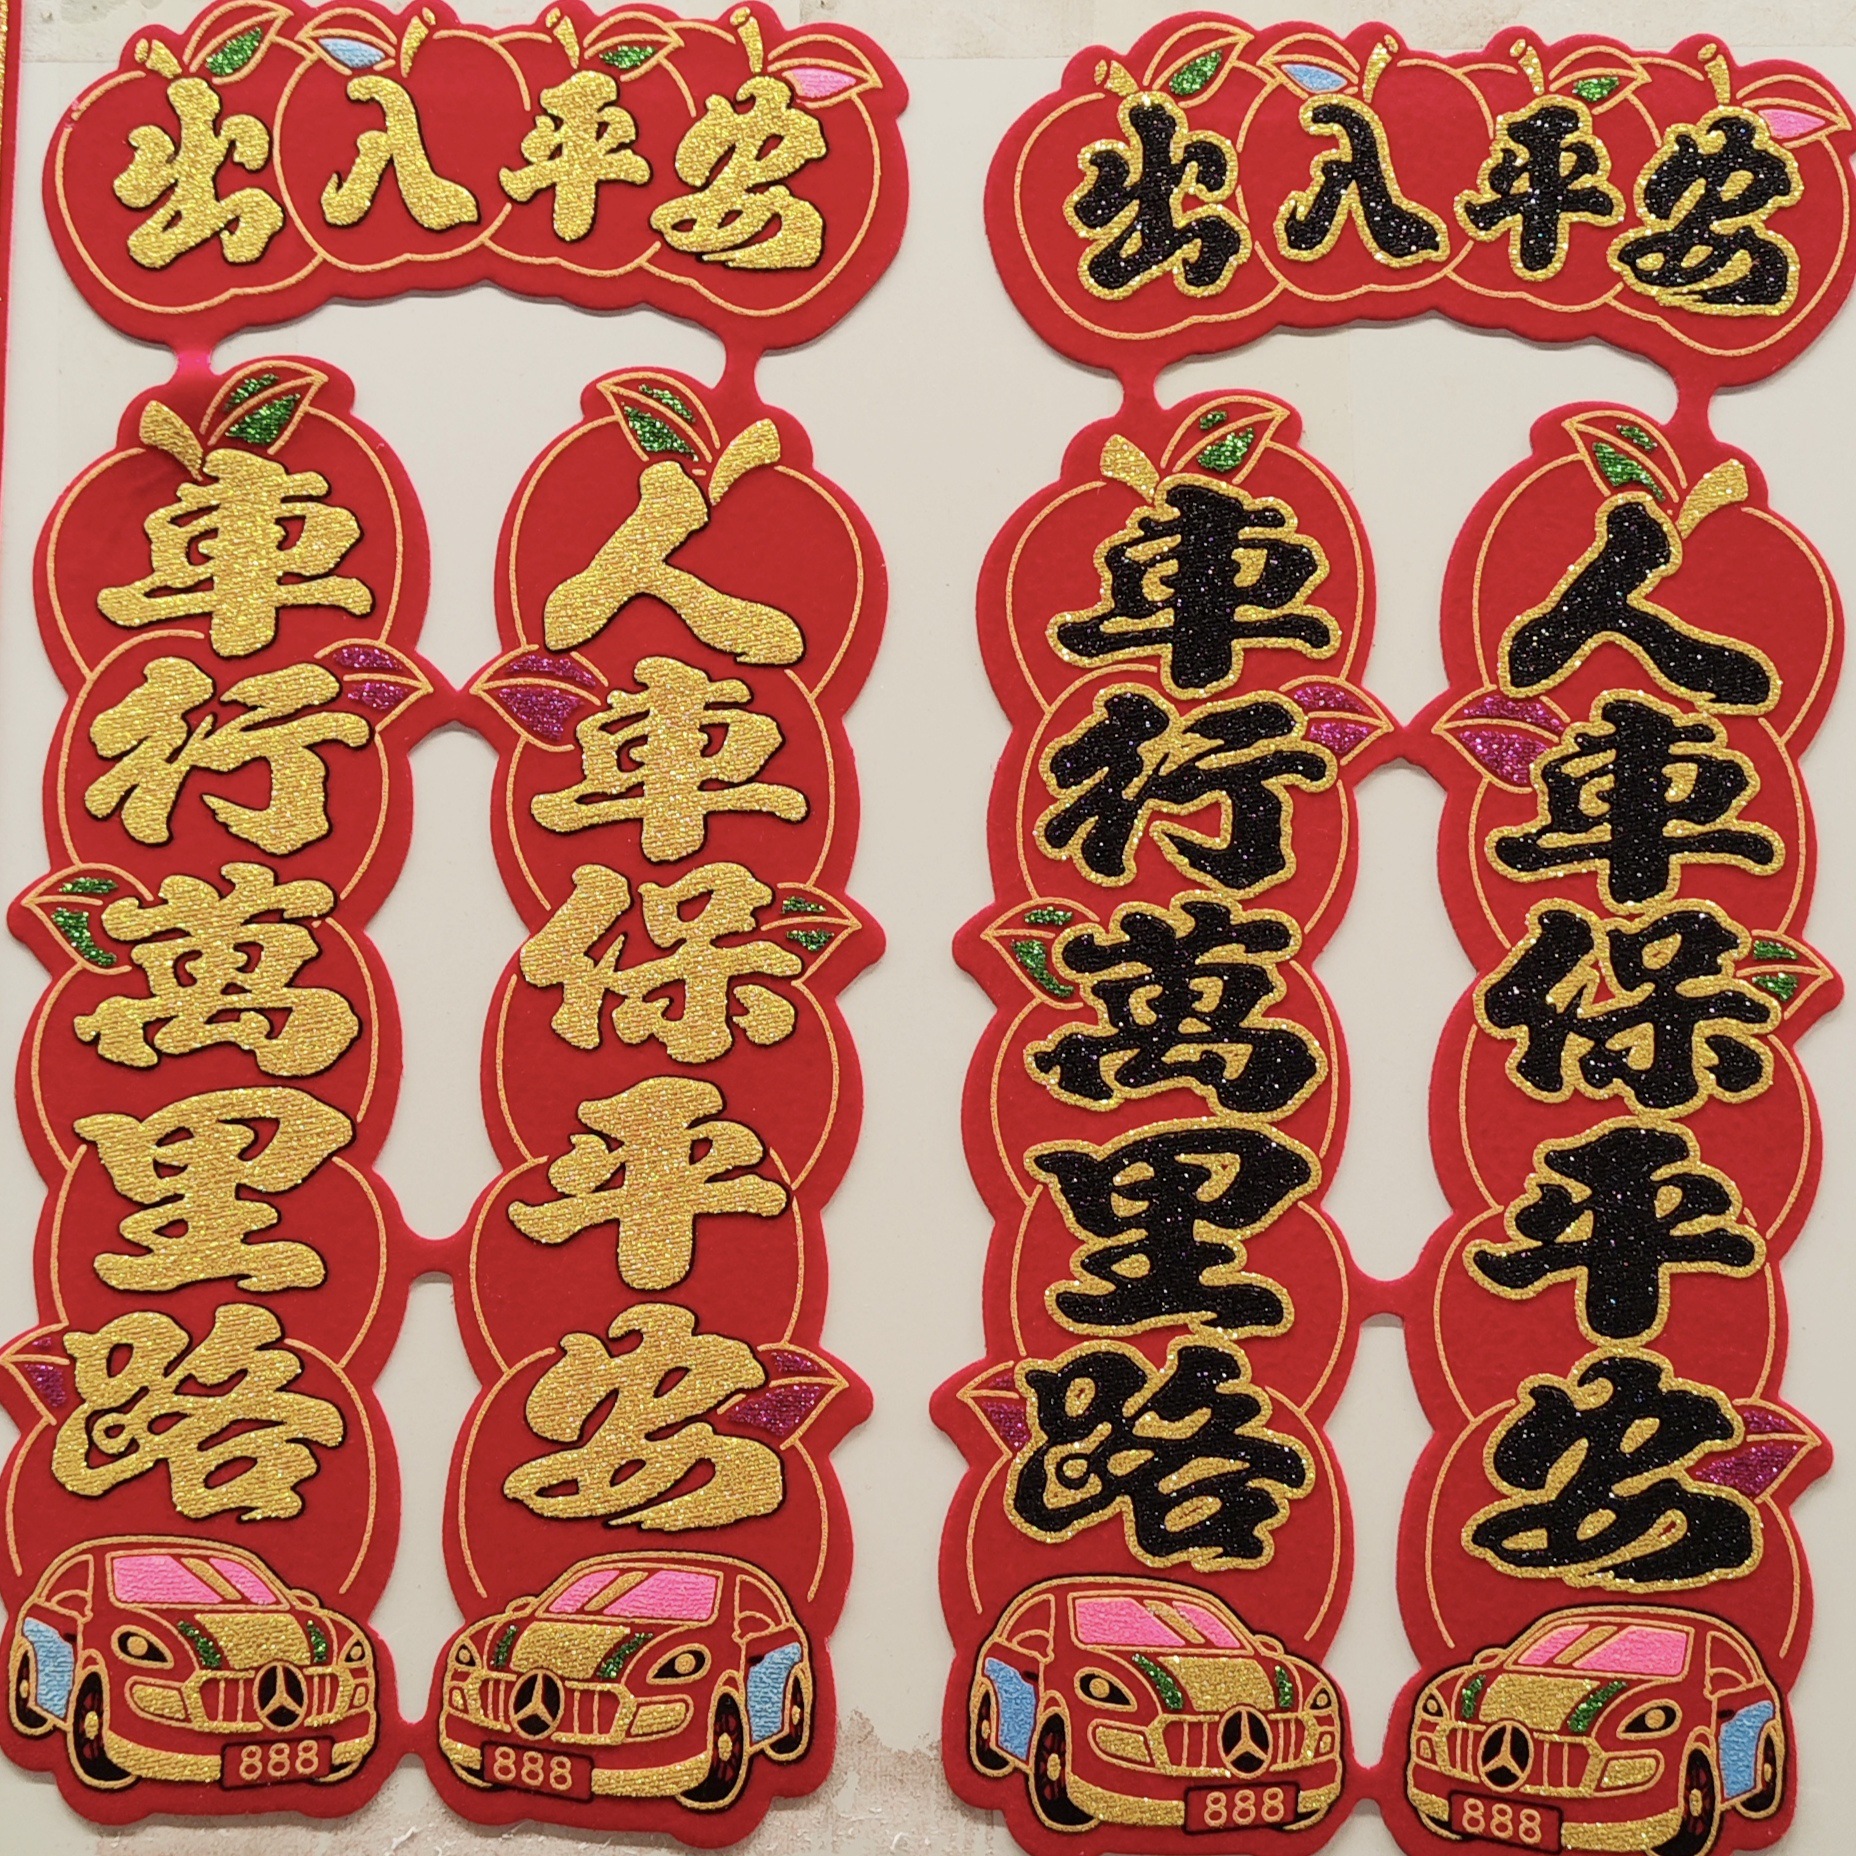 出入平安
車行萬里路
人車保平安
888
888
出入平安
車行萬里路
人車保平安
888
888